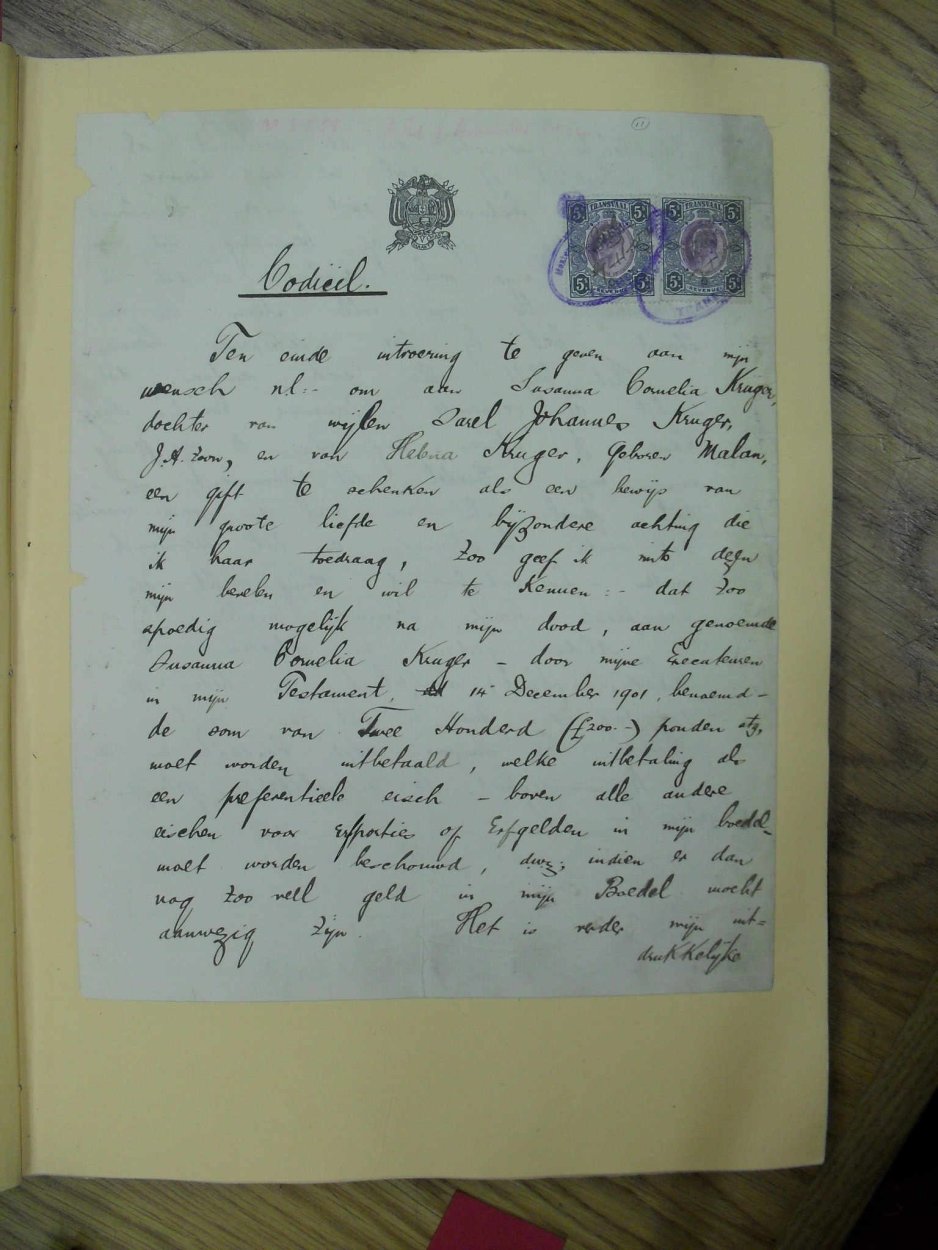 11
5/ TRANSVAAL 5/
5/ REVENUE 5/
5/ TRANSVAAL 5/
5/ REVENUE 5/
Codicil.
Ten einde uitvoering te geven aan mijn
wensch nl:- om aan Susanna Cornelia Kruger,
dochter van wijlen Sarel Johannes Kruger,
J.A. zoon, en van Helena Kruger, geboren Malan,
een gift te schenken als een bewijs van
mijn groote liefde en bijzondere achting die
ik haar toedraag, zoo geef ik mits dezen
mijn bevelen en wil te kennen:- dat zoo
spoedig mogelijk na mijn dood, aan genoemde
Susanna Cornelia Kruger - door mijne Executeuren
in mijn Testament, 14 December 1901, benoemd -
de som van Twee Honderd (£200.-) ponden stg,
moet worden uitbetaald, welke uitbetaling als
een preferentieele eisch - boven alle andere
eischen voor Erfporties of Erfgelden in mijn boedel-
moet worden beschouwd, dwz; indien er dan
nog zoo vell geld in mijn Boedel mocht
aanwezig zijn. Het is verder mijn uit=
drukkelijke